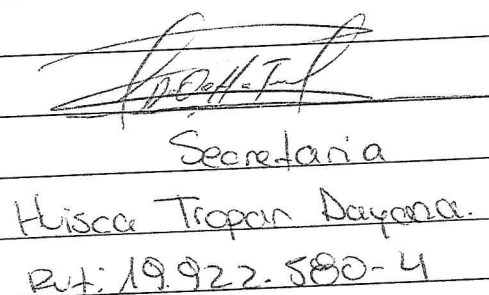 Secretaria
Huisca Tropan Dayana.
Rut: 19.922.580-4